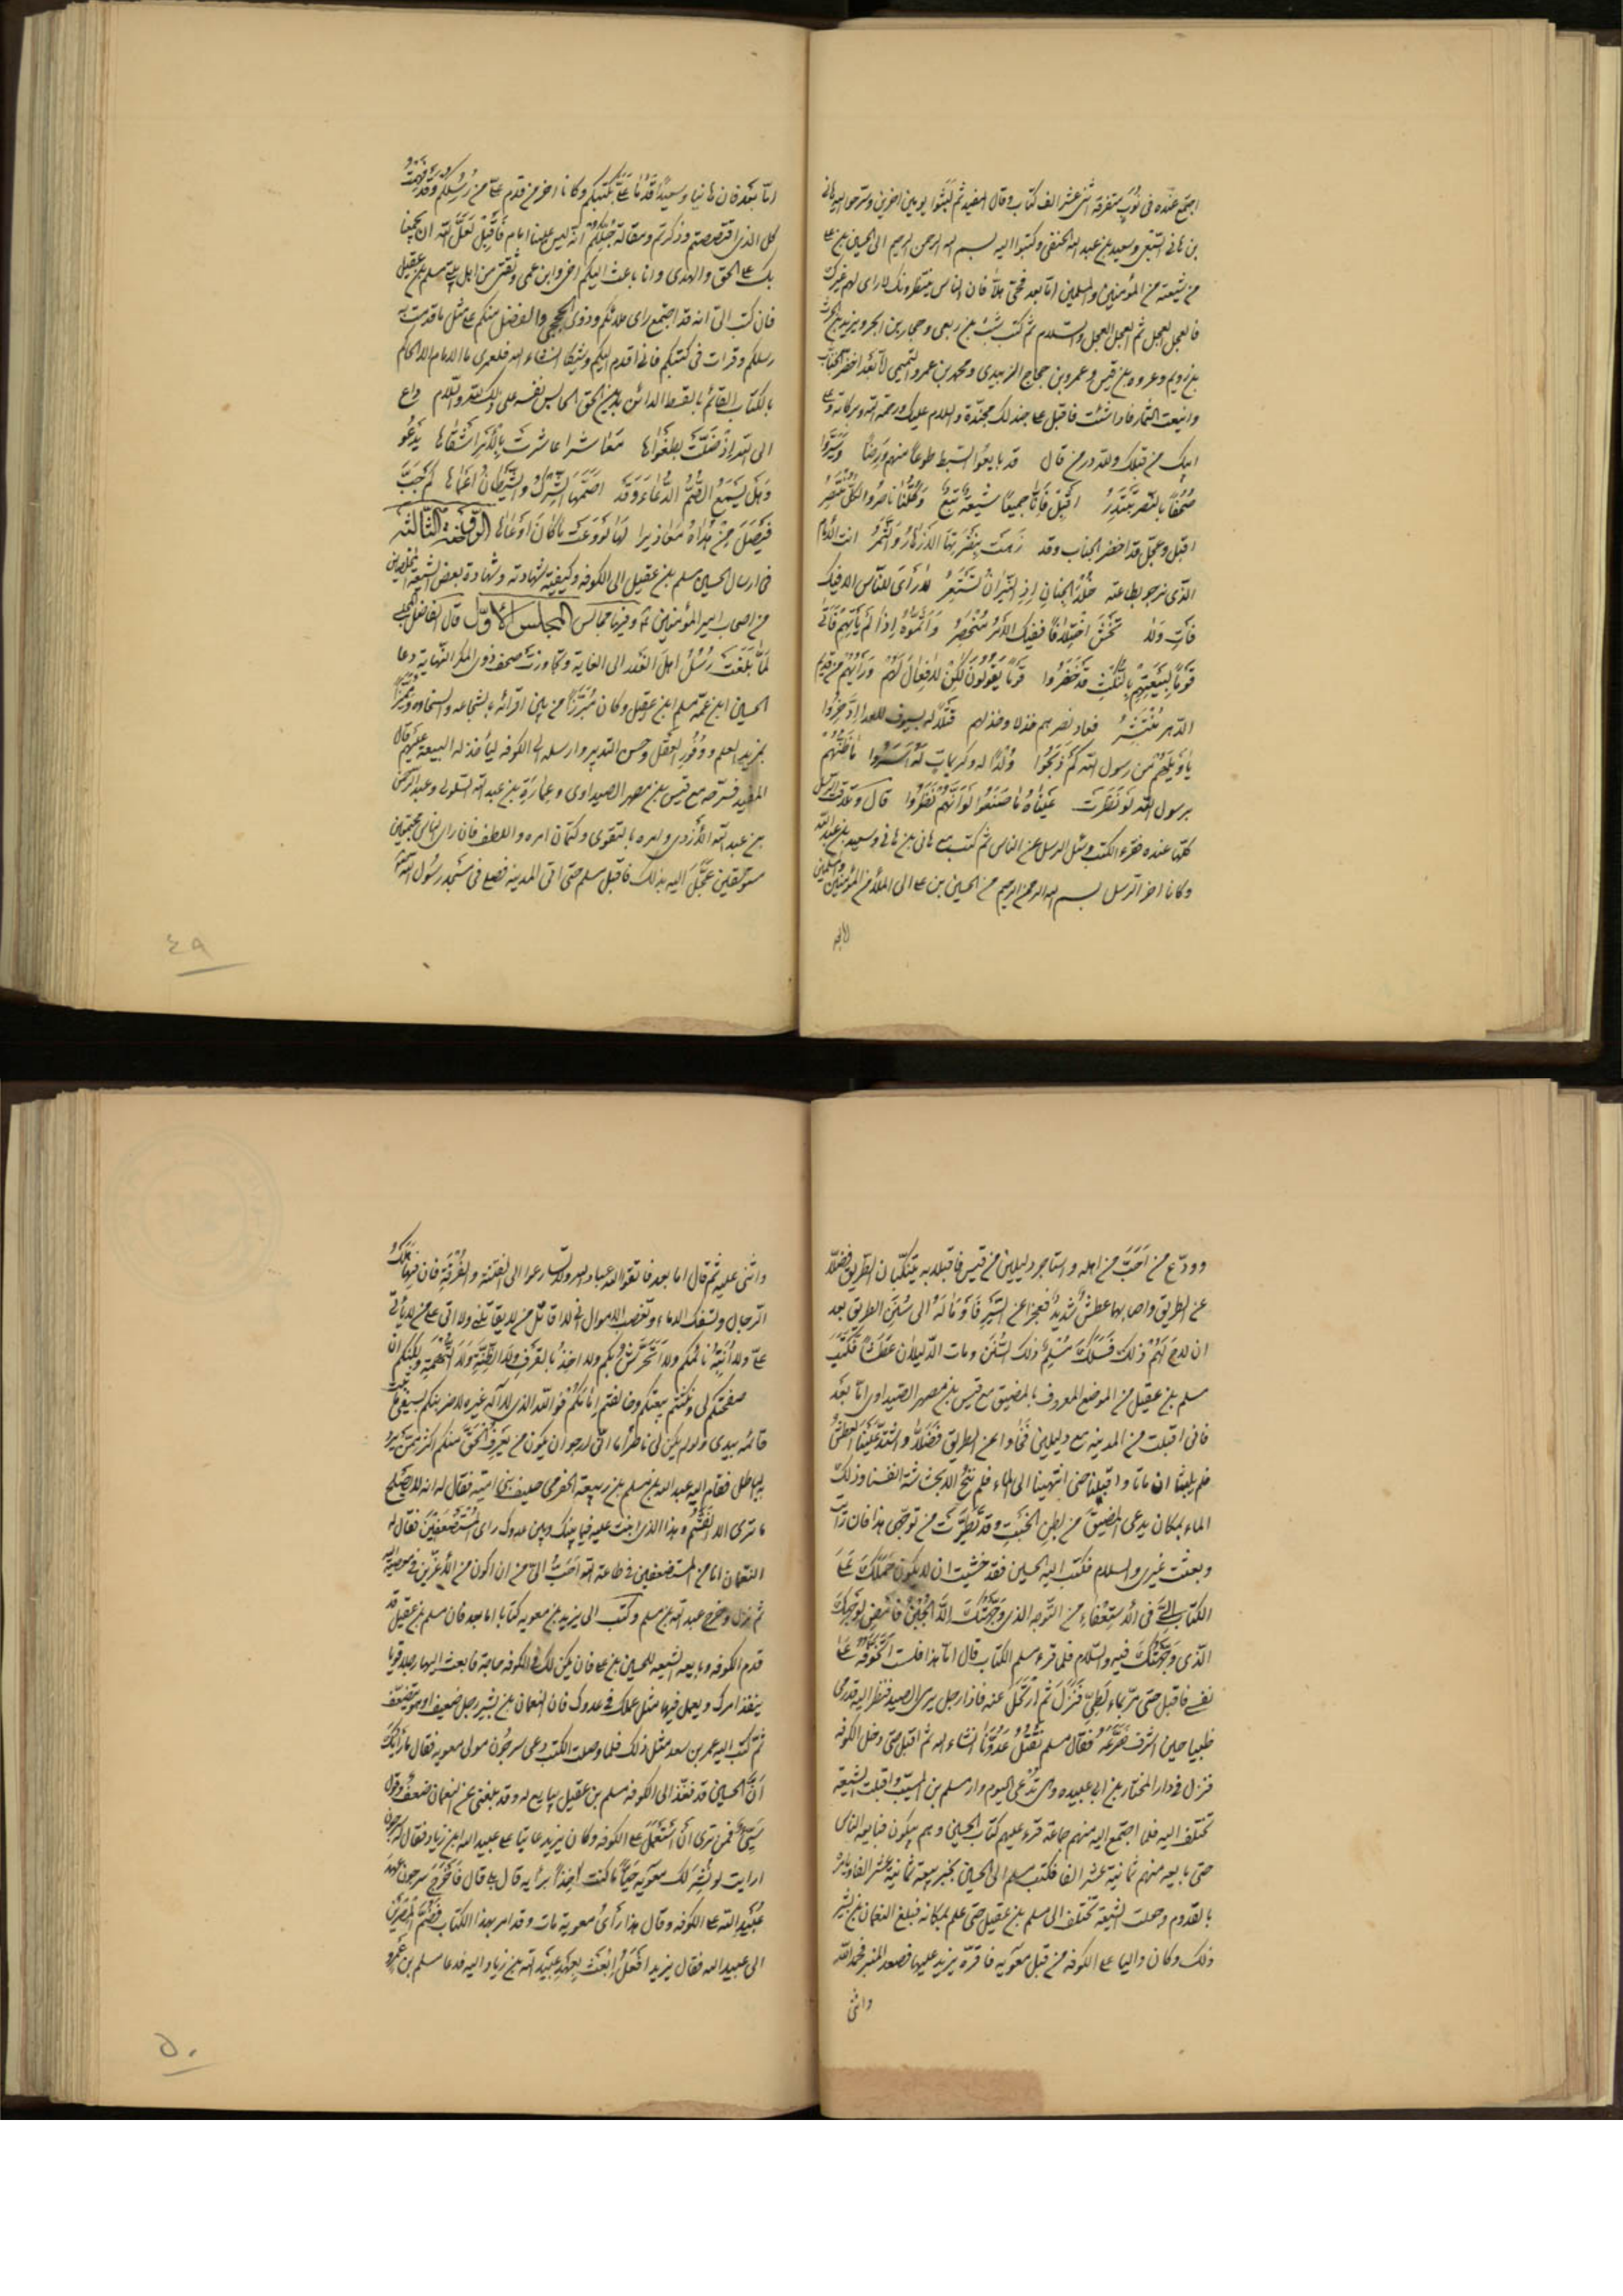 اجتمع عنده فى نوب متفرقه اثنى عشر الف كتاب وقال المفيد ثم لبثوا يومين اخرين وسرحوا اليه هانى
بن هانى السبيعى وسعيد بن عبد الله الحنفى وكتبوا اليه بسم الله الرحمن الرحيم الى الحسين بن على
من شيعته من المؤمنين والمسلمين امّا بعد فحىّ هلاّ فان الناس ينتظرونك لا راى لهم غيرك
فالعجل العجل ثم العجل العجل والسلام ثم كتب شبث بن ربعى وحجار بن ابجر ويزيد بن الحرث
بن رويم وعروه بن قيس وعمرو بن حجاج الزبيدى ومحمد بن عمرو التيمى امّا بعد اخضر الجناب
واينعت الثمار فاذا شئت فاقبل على جند لك مجنّدة والسلام عليك ورحمة الله وبركاته وعلى
ابيك من قبلك ولله در من قال قد بايعوا السبط طوعاً منهم ورضاً وسيّروا
صحفاً بالنصر تبتدر اقبل فانّا جميعاً شيعة تبع وكلّنا ناصر والكلّ منتصر
اقبل وعجّل قد اخضر الجناب وقد زهت بنضرتها الازهار والثمر انت الامام
الذى نرجو بطاعته خلد الجنان اذ النيران تستعر لا راى للناس الا فيك
فأت ولا تخش اختلافاً ففيك الامر منحصر وأثّموه اذا لم يأتهم فأتى
قوماً لبيعتهم بالنكث قد خفروا قوماً يقولون لكن لا فعال لهم ورأيهم من قديم
الدهر منتشر فعاد نصرهم خذلا وخذلهم قتلاً له بسيوف للعدا ادّخروا
يا ويلهم من رسول الله كم ذبحوا ولداً له وكريمات له اسروا ما ظنّهم
برسول الله لو نظرت عيناه ما صنعوا لو انّهم نظروا قال وتلاقت الرسل
كلها عنده فقرء الكتب وسئل الرسل عن الناس ثم كتب مع هانى بن هانى وسعيد بن عبد الله
وكانا اخر الرسل بسم الله الرحمن الرحيم من الحسين بن على الى الملأ من المؤمنين والمسلمين
امّا بعد فان هانيا وسعيداً قدما علىّ بكتبكم وكانا اخر من قدم علىّ من رسلكم وقد فهمت
كل الذى اقتصصتم وذكرتم ومقالة جلّكم انّه ليس علينا امام فأقبل لعلّ الله ان يجمعنا
بك على الحق والهدى وانا باعث اليكم اخى وابن عمى وثقتى من اهل بيتى مسلم بن عقيل
فان كتب الىّ انه قد اجتمع راى ملائكم وذوى الحجى والفضل منكم على مثل ما قدمت به
رسلكم وقرات فى كتبكم فانى اقدم اليكم وشيكا انشاء الله فلعمرى ما الامام الا الحاكم
بالكتاب القائم بالقسط الدائن بدين الحق الحابس نفسه على ذلك لله والسلام داع
الى الله اذ ضلّت بطغواها معاشرا عاشرت بالامر اشقاها يدعو
وهل يسمع الصمّ الدعاء وقد اصمّها الشرك والشيطان اعماها كم جبّ
فيصل من هداه معاذيرا لها لو وعت ما كان اوعاها الوقعة الثالثة
فى ارسال الحسين مسلم بن عقيل الى الكوفه وكيفية شهادته وشهادة بعض الشيعة المخلصين
من اصحاب امير المؤمنين ع وفيها مجالس المجلس الاوّل قال الفاضل المجلسى
لمّا بلغت رسل اهل الغدر الى الغاية وتجاوزت صحف ذوى المكر النهاية دعا
الحسين ابن عمّه مسلم بن عقيل وكان مبرّزاً من بين اقرانه بالشجاعه والسخاوه ومتميّزاً
بمزيد العلم ووفور العقل وحسن التدبير وارسله الى الكوفه ليأخذ له البيعة عليهم قال
المفيد فسرّحه مع قيس بن مصهر الصيداوى وعمارة بن عبد الله السلولى وعبد الرحمن
بن عبد الله الأزدى وامره بالتقوى وكتمان امره واللطف فان راى الناس مجتمعين
مستوثقين عجّل اليه بذلك فاقبل مسلم حتى اتى المدينه فصلى فى مسجد رسول الله
٤٩
وودّع من احبّ من اهله واستاجر دليلين من قيس فاقبلا به يتنكبان الطريق فضلّا
عن الطريق واصابهما عطش شديد فعجزا عن السير فاومأ له الى سنن الطريق بعد
ان لاح لهم ذلك فسلك مسلم ذلك السنن ومات الدليلان عطشاً فكتب
مسلم بن عقيل من الموضع المعروف بالمضيق مع قيس بن مصهر الصيداوى امّا بعد
فانى اقبلت من المدينه مع دليلين فجازا عن الطريق فضلّا واشتدّ علينا العطش
فلم يلبثا ان ماتا واقبلنا حتى انتهينا الى الماء فلم ننج الا بحشاشة انفسنا وذلك
الماء بمكان يدعى المضيق من بطن الخبت وقد تطيّرت من توجّهى هذا فان رايت
وبعثت غيرى والسلام فكتب اليه الحسين فقد خشيت ان لا يكون حملك على
الكتاب الىّ فى الاستعفاء من التوجه الذى وجّهتك الّا الجبن فامض لوجهك
الذى وجّهتك فيه والسلام فلما قرء مسلم الكتاب قال امّا هذا فلست اتخوفه على
نفسى فاقبل حتى مرّ بماء لطىّ فنزل ثم ارتحل عنه فاذا رجل يرمى الصيد فنظر اليه قد رمى
ظبيا حين اشرف فصرعه فقال مسلم نقتل عدوّنا انشاء الله ثم اقبل حتى دخل الكوفه
فنزل فى دار المختار بن ابى عبيده وهى تدعى اليوم دار مسلم بن المسيّب واقبلت الشيعة
تختلف اليه فلما اجتمع اليه منهم جماعة قرء عليهم كتاب الحسين وهم يبكون فبايعه الناس
حتى بايعه منهم ثمانية عشر الفا فكتب مسلم الى الحسين يخبره ببيعة ثمانية عشر الفا ويأمره
بالقدوم وجعلت الشيعة تختلف الى مسلم بن عقيل حتى علم بمكانه فبلغ النعمان بن بشير
ذلك وكان واليا على الكوفه من قبل معويه فاقرّه يزيد عليها فصعد المنبر فحمد الله
واثنى
واثنى عليه ثم قال اما بعد فاتقوا الله عباد الله ولا تسارعوا الى الفتنة والفرقة فان فيها تهلك
الرجال وتسفك الدماء وتغصب الاموال انى لا اقاتل من لا يقاتلنى ولا اتى على من لا ياتى
علىّ ولا أنبّه نائمكم ولا اتحرّش بكم ولا اخذ بالقرف ولا الظنّة ولا التهمة ولكنكم ان
صفحتكم لى ونكثتم بيعتكم وخالفتم امامكم فو الله الذى لا اله غيره لاضربنكم بسيفى ما ثبت
قائمه بيدى ولو لم يكن لى ناصر امّا انّى ارجو ان يكون من يعرف الحقّ منكم اكثر ممن يرديه
الباطل فقام اليه عبد الله بن مسلم بن ربيعة الحضرمى حليف بنى اميّه فقال له انه لا يصلح
ما ترى الا الغشم وهذا الذى انت عليه فيما بينك وبين عدوك راى المستضعفين فقال له
النعمان انا من المستضعفين فى طاعة الله احبّ الىّ من ان اكون من الاعزّين فى معصية الله
ثم نزل وخرج عبد الله بن مسلم وكتب الى يزيد بن معويه كتابا اما بعد فان مسلم بن عقيل قد
قدم الكوفه وبايعه الشيعه للحسين بن على فان يكن لك فى الكوفه حاجة فابعث اليها رجلا قويا
ينفذ امرك ويعمل فيها مثل عملك فى عدوك فان النعمان بن بشير رجل ضعيف او هو يتضعّف
ثم كتب اليه عمر بن سعد مثل ذلك فلما وصلت الكتب دعى سرجون مولى معويه فقال ما رأيك
انّ الحسين قد نفذ الى الكوفه مسلم بن عقيل يبايع له وقد بلغنى عن النعمان ضعف وقول
سيّئ فمن ترى ان استعمل على الكوفه وكان يزيد عاتبا على عبيد الله بن زياد فقال له سرجون
ارايت لو نشر لك معويه حيّاً ما كنت اخذاً برأيه قال بلى قال فاخرج سرجون عهد
عبيد الله على الكوفه وقال هذا رأى معوية مات وقد امر بهذا الكتاب فضمّ المصرين
الى عبيد الله فقال يزيد افعل ابعث بعهد عبيد الله بن زياد اليه فدعا مسلم بن عمرو
٥٠